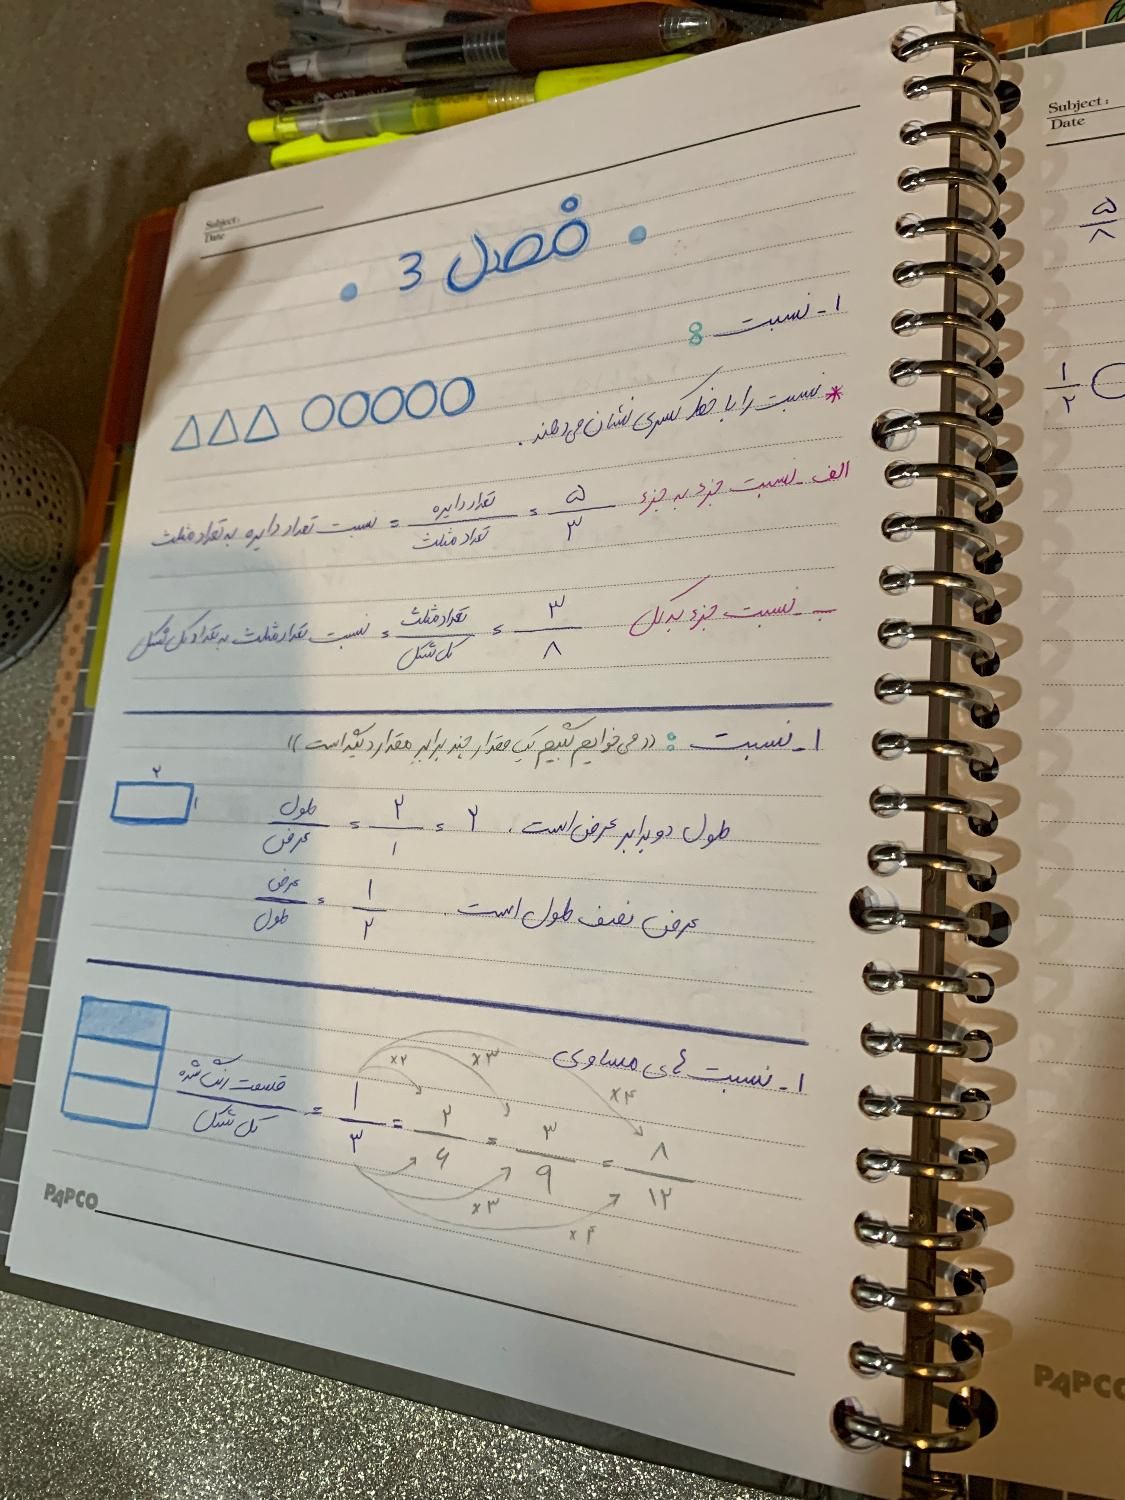 Subject:
Date
فصل 3
۱ - نسبت :
* نسبت را با خط کسری نشان می‌دهند .
الف - نسبت جزء به جزء ۵/۳ = تعداد دایره/تعداد مثلث = نسبت تعداد دایره به تعداد مثلث
ب - نسبت جزء به کل ۳/۸ = تعداد مثلث/کل شکل = نسبت تعداد مثلث به تعداد کل شکل
۱ - نسبت : ((می‌خواهیم بگیم یک مقدار چند برابر مقدار دیگه است))
۲
۱
طول/عرض = ۲/۱ = ۲ طول دو برابر عرض است .
عرض/طول = ۱/۲ عرض نصف طول است .
۱ - نسبت های مساوی
×۲ ×۳ ×۴
قسمت رنگ شده/کل شکل = ۱/۳ = ۲/۶ = ۳/۹ = ۸/۱۲
×۳
×۴
PAPCO
Subject:
Date
۵/۸
۱/۲
PAPCO